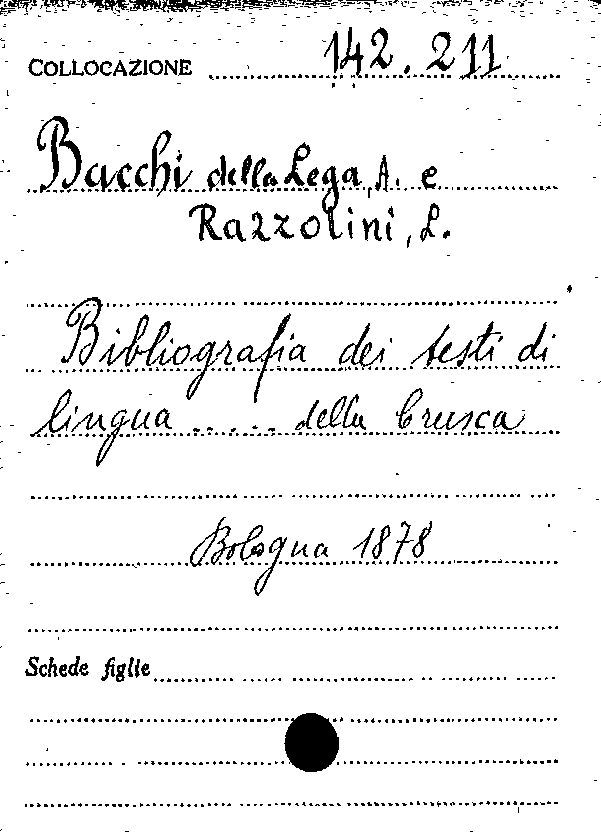 COLLOCAZIONE 142.211
Bacchi della Lega, A. e
Razzolini, L.
Bibliografia dei testi di
lingua ..... della Crusca
Bologna 1878
Schede figlie